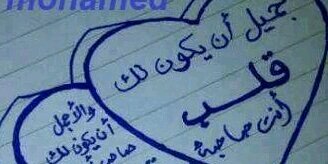 mohamed
جميل أن يكون لك
قلب
أنت صاحبه
والأجمل
أن يكون لك
صاحب